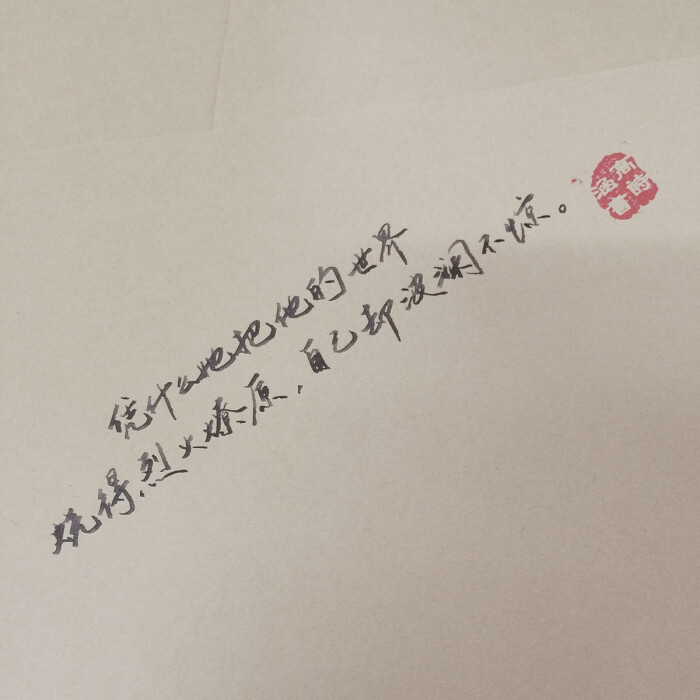 凭什么她把他的世界
烧得烈火燎原，自己却波澜不惊。